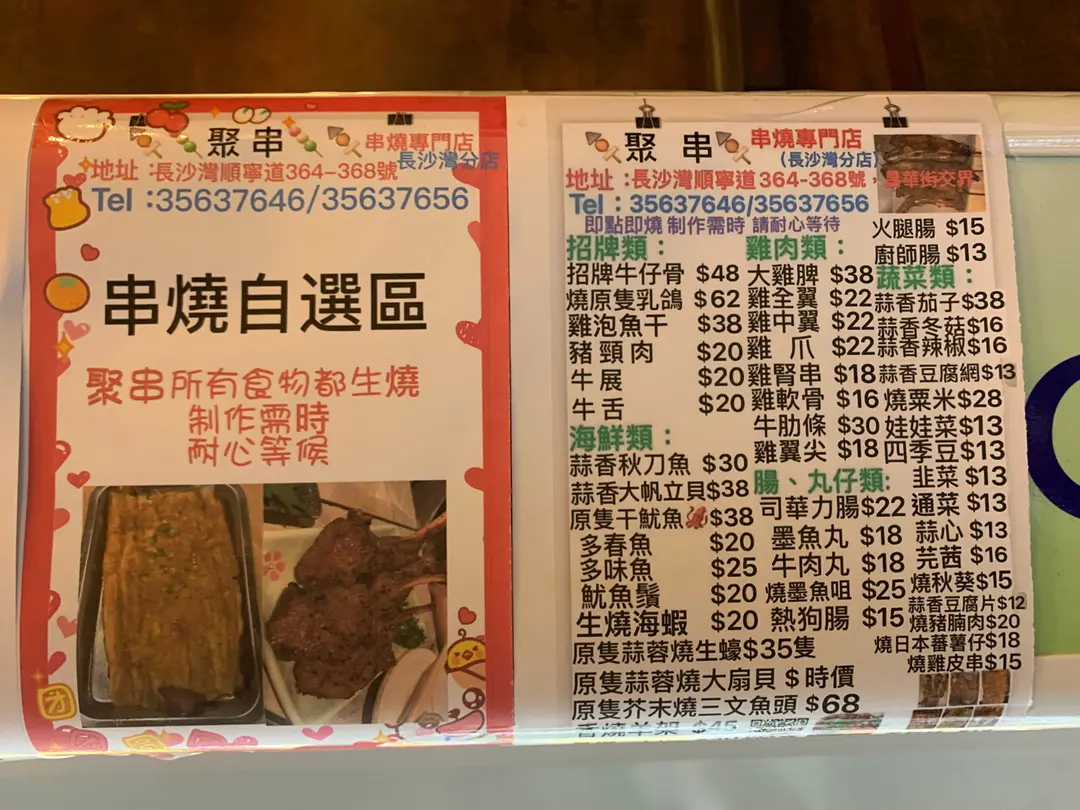 聚串
串燒專門店
長沙灣分店
地址：長沙灣順寧道364-368號
Tel：35637646/35637656
串燒自選區
聚串所有食物都生燒
制作需時
耐心等候
聚串
串燒專門店
(長沙灣分店)
地址：長沙灣順寧道364-368號，昌華街交界
Tel：35637646/35637656
即點即燒 制作需時 請耐心等待
招牌類：
招牌牛仔骨 $48
燒原隻乳鴿 $62
雞泡魚干 $38
豬頸肉 $20
牛展 $20
牛舌 $20
海鮮類：
蒜香秋刀魚 $30
蒜香大帆立貝$38
原隻干魷魚$38
多春魚 $20
多味魚 $25
魷魚鬚 $20
生燒海蝦 $20
原隻蒜蓉燒生蠔$35隻
原隻蒜蓉燒大扇貝 $時價
原隻芥末燒三文魚頭 $68
香燒羊架 $45
雞肉類：
大雞脾 $38
雞全翼 $22
雞中翼 $22
雞爪 $22
雞腎串 $18
雞軟骨 $16
牛肋條 $30
雞翼尖 $18
腸、丸仔類:
司華力腸$22
墨魚丸 $18
牛肉丸 $18
燒墨魚咀 $25
熱狗腸 $15
火腿腸 $15
廚師腸 $13
蔬菜類：
蒜香茄子$38
蒜香冬菇$16
蒜香辣椒$16
蒜香豆腐網$13
燒粟米$28
娃娃菜$13
四季豆$13
韭菜 $13
通菜 $13
蒜心 $13
芫茜 $16
燒秋葵$15
蒜香豆腐片$12
燒豬腩肉$20
燒日本蕃薯仔$18
燒雞皮串$15